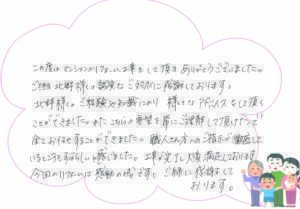 この度はマンションのリフォーム工事をして頂きありがとうございました。
ご担当 北野様の誠実なご対応に感謝しております。
北野様の、ご経験や知識により 様々なアドバイスをして頂く
ことができました。また こちらの要望を常にご理解して頂けたので
全ておまかせすることができました。職人さん方へのご指示が徹底して
いるところもすばらしいと感じました。工事が完了し大変満足しております
今回のリフォームは感動の域です。ご縁に感謝して
おります。